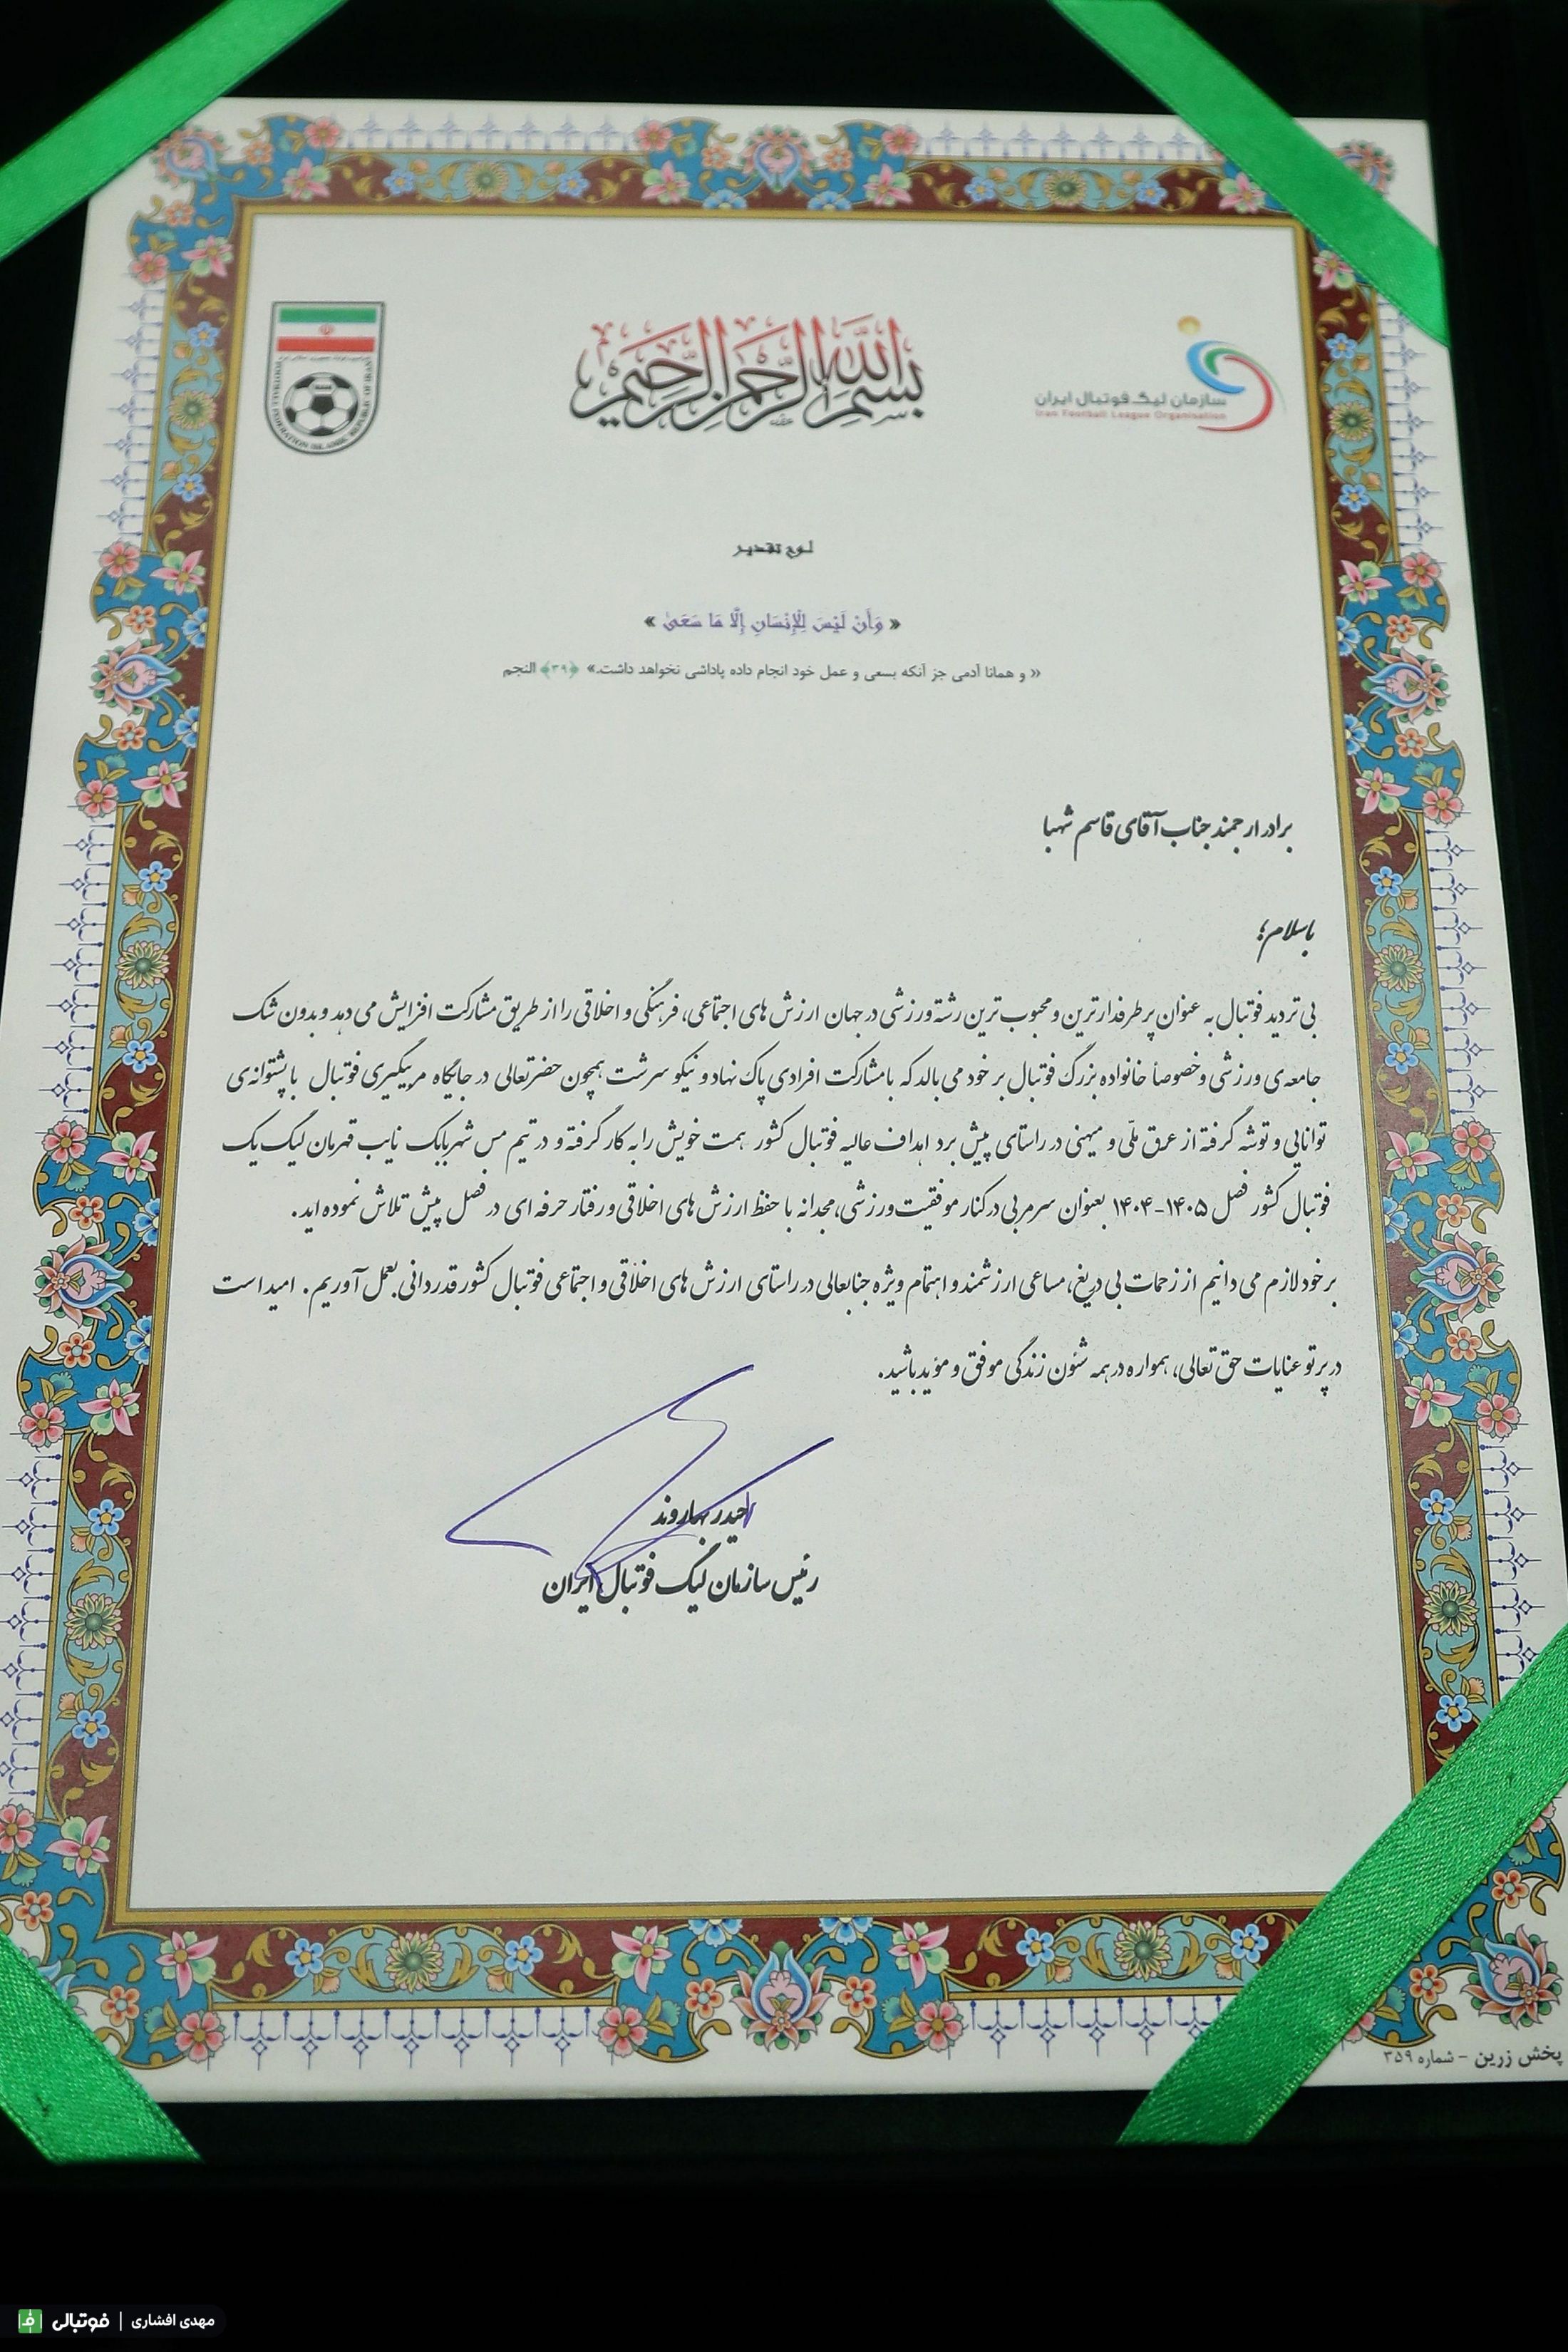 بسم الله الرحمن الرحیم
سازمان لیگ فوتبال ایران
Iran Football League Organisation
FOOTBALL FEDERATION ISLAMIC REPUBLIC OF IRAN
لوح تقدیر
« وَأَنْ لَيْسَ لِلْإِنْسَانِ إِلَّا مَا سَعَىٰ »
« و همانا آدمی جز آنکه بسعی و عمل خود انجام داده پاداشی نخواهد داشت.» ﴿۳۹﴾ النجم
برادر ارجمند جناب آقای قاسم شهبا
باسلام؛
بی تردید فوتبال به عنوان پرطرفدارترین و محبوب ترین رشته ورزشی در جهان ارزش های اجتماعی، فرهنگی و اخلاقی را از طریق مشارکت افزایش می دهد و بدون شک
جامعه ی ورزشی و خصوصاً خانواده بزرگ فوتبال بر خود می بالد که با مشارکت افرادی پاک نهاد و نیکو سرشت همچون حضرتعالی در جایگاه مربیگیری فوتبال با پشتوانه ی
توانایی و توشه گرفته از عرق ملّی و میهنی در راستای پیش برد اهداف عالیه فوتبال کشور همت خویش را به کار گرفته و در تیم مس شهربابک نایب قهرمان لیگ یک
فوتبال کشور فصل ۱۴۰۵-۱۴۰۴ بعنوان سرمربی در کنار موفقیت ورزشی، مجدانه با حفظ ارزش های اخلاقی و رفتار حرفه ای در فصل پیش تلاش نموده اید.
بر خود لازم می دانیم از زحمات بی دریغ، مساعی ارزشمند و اهتمام ویژه جنابعالی در راستای ارزش های اخلاقی و اجتماعی فوتبال کشور قدردانی بعمل آوریم. امید است
در پرتو عنایات حق تعالی، همواره در همه شئون زندگی موفق و مؤید باشید.
حیدر بهاروند
رئیس سازمان لیگ فوتبال ایران
پخش زرین - شماره ۳۵۹
مهدی افشاری | فوتبالی